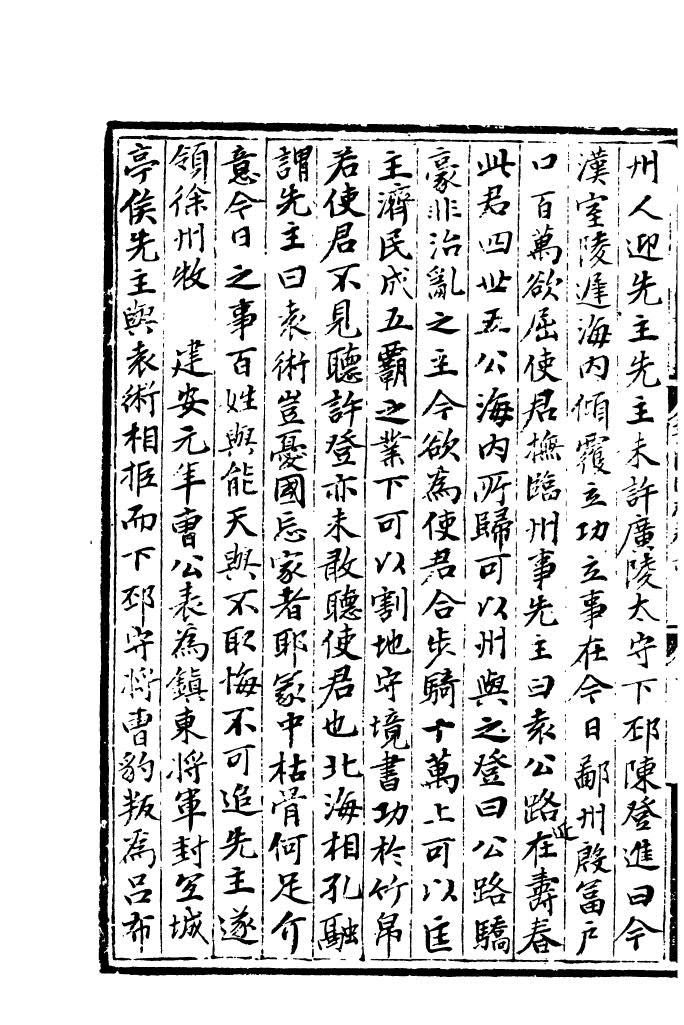 州人迎先主先主未許廣陵太守下邳陳登進曰今
漢室陵遲海內傾覆立功立事在今日鄙州殷富戶
口百萬欲屈使君撫臨州事先主曰袁公路近在壽春
此君四世五公海內所歸可以州與之登曰公路驕
豪非治亂之主今欲為使君合步騎十萬上可以匡
主濟民成五霸之業下可以割地守境書功於竹帛
若使君不見聽許登亦未敢聽使君也北海相孔融
謂先主曰袁術豈憂國忘家者耶冢中枯骨何足介
意今日之事百姓與能天與不取悔不可追先主遂
領徐州牧　建安元年曹公表為鎮東將軍封宜城
亭侯先主與袁術相拒而下邳守將曹豹叛為呂布